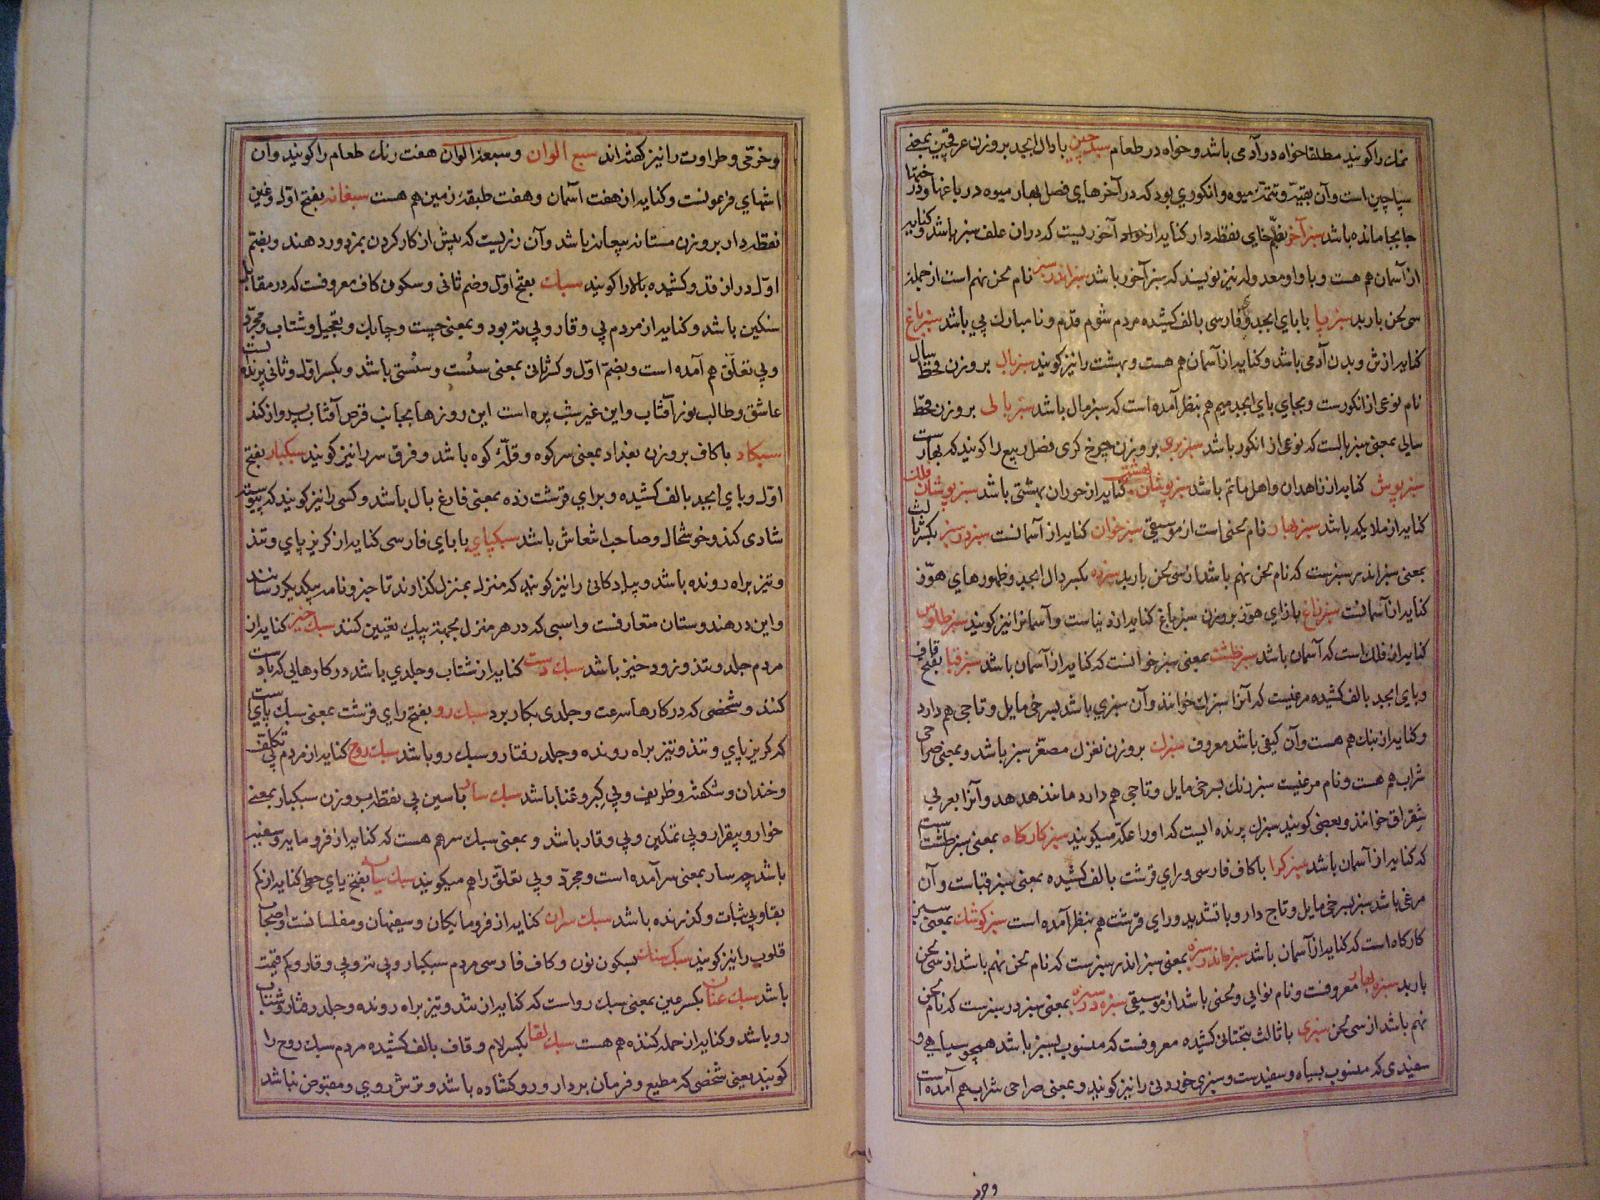 نمك را كويند مطلقا خواه در آدمى باشد و خواه در طعام سبد چين با دال ابجد بروزن عرقچين بمعنى
سپاچين است و آن بقيه و تتمهٔ ميوه و انكورى بود كه در آخرهاى فصل بهار ميوه در باغها و درختها
جابجا مانده باشد سبز آخر بضم خاى نقطه دار كنايه از آخوريست كه در ان علف سبز باشد و كنايه
از آسمان هم هست و با واو معدوله نيز نويسند كه سبز آخور باشد سبز اندر سبز نام لحن نهم است از جملهٔ
سى لحن باربد سبز پا با باى ابجد و فارسى بالف كشيده مردم شوم قدم و نا مبارك پى باشد سبز باغ
كنايه از تن و بدن آدمى باشد و كنايه از آسمان هم هست و بهشت را نيز كويند سبز بال بروزن قحط سال
نام نوعى از انكورست و بجاى باى ابجد ميم هم بنظر آمده است كه سبز مال باشد سبز بالى بروزن قحط
سالى بمعنى سبز بالست كه نوعى از انكور باشد سبز پرى بروزن چرخ كرى فصل ربيع را كويند كه بهارست
سبز پوش كنايه از زاهدان و اهل ماتم باشد سبز پوشان بهشتى كنايه از حوران بهشتى باشد سبز پوشان فلك
كنايه از ملايكه باشد سبز بهار نام لحنى است از موسيقى سبز خوان كنايه از آسمانست سبز در سبز بكسر ثالث
بمعنى سبز اندر سبزست كه نام لحن نهم باشد از سى لحن باربد سبز ده بكسر دال ابجد و ظهور هاى هوز
كنايه از آسمانست سبز زاغ با زاى هوز بروزن سبز باغ كنايه از دنياست و آسمانرا نيز كويند سبز طاوس
كنايه از فلك است كه آسمان باشد سبز طشت بمعنى سبز خوانست كه كنايه از آسمان باشد سبز قبا بفتح قاف
و باى ابجد بالف كشيده مرغيست كه آنرا سبزك خوانند و آن سبزى باشد بسرخى مايل و تاجى هم دارد
و كنايه از بنك هم هست و آن كيفى باشد معروف سبزك بروزن نغزك مصغر سبز باشد و بمعنى صراحى
شراب هم هست و نام مرغيست سبز رنك بسرخى مايل و تاجى هم دارد مانند هدهد و آنرا بعربى
شقراق خوانند و بعضى كويند سبزك پرنده ايست كه او را عكه ميكويند سبز كارگاه بمعنى سبز طشت است
كه كنايه از آسمان باشد سبز كرا با كاف فارسى و راى قرشت بالف كشيده بمعنى سبز قباست و آن
مرغى باشد سبز بسرخى مايل و تاج دار و با تشديد راى قرشت هم بنظر آمده است سبز كوشك بمعنى سبز
كارگاه است كه كنايه از آسمان باشد سبزه اندر سبزه بمعنى سبز اندر سبزست كه نام لحن نهم باشد از سى لحن
باربد سبزه بهار معروفست و نام نوايى و لحنى باشد از موسيقى سبزه در سبزه بمعنى سبز در سبزست كه نام لحن
نهم باشد از سى لحن سبزى با ثالث بتحتانى كشيده معروفست كه منسوب بسبز باشد همچو سياهى و
سفيدى كه منسوب بسياه و سفيدست و سبزى خوردنى را نيز كويند و بمعنى صراحى شراب هم آمده است
و خرمى و طراوت را نيز كفته اند سبع الوان و سبعة الوان هفت رنك طعام را كويند و آن
اشهاى فرعونست و كنايه از هفت آسمان و هفت طبقهٔ زمين هم هست سبغانه بفتح اول و غين
نقطه دار بروزن مستانه بيعانه باشد و آن زريست كه پيش از كار كردن بمزدور دهند و بضم
اول دراز قد و كشيده بالا را كويند سبك بفتح اول و ضم ثانى و سكون كاف معروفست كه در مقابل
سنكين باشد و كنايه از مردم بى وقار و بى ته بود و بمعنى چست و چابك و بتعجيل و شتاب و مجرد
و بى تعلق هم آمده است و بضم اول و كسر ثانى بمعنى سست و سستى باشد و بكسر اول و ثانى پرنده ايست
عاشق و طالب نور آفتاب و اين غير شب پره است اين روزها بجانب قرص آفتاب پرواز كند
سبكاد با كاف بروزن بغداد بمعنى سر كوه و قلهٔ كوه باشد و فرق سر را نيز كويند سبكبار بفتح
اول و باى ابجد بالف كشيده و براى قرشت زده بمعنى فارغ بال باشد و كسى را نيز كويند كه پيوسته
شادى كند و خوشحال و صاحب انتعاش باشد سبكپاى با باى فارسى كنايه از كريز پاى و تند
و تيز براه رونده باشد و پيادكانى را نيز كويند كه منزل بمنزل كذارند تا خبر و نامه بيكديكر رسانند
و اين در هندوستان متعارفست و اسپى كه در هر منزل بجهة پيك تعيين كنند سبك خيز كنايه از
مردم جلد و تند و زود خيز باشد سبك دست كنايه از شتاب و جلدى باشد در كارهايى كه بدست
كنند و شخصى كه در كارها سرعت و جلدى بكار برد سبك رو بفتح راى قرشت بمعنى سبك پاى است
كه كريز پاى و تند و تيز براه رونده و جلد رفتار و سبك رو باشد سبك روح كنايه از مردم بى تكلف
و خندان و شكفته و ظريف و بى كبر و عنا باشد سبك سار با سين بى نقطه بروزن سبكبار بمعنى
خوار و بيقرار و بى تمكين و بى وقار باشد و بمعنى سبك سر هم هست كه كنايه از فرومايه و سفيه
باشد چه سار بمعنى سر آمده است و مجرد و بى تعلق را هم ميكويند سبك سيا بفتح ياى حطى كنايه از كم
بقا و بى ثبات و كذرنده باشد سبك سران كنايه از فرومايكان و سفيهان و مفلسانست و اصحاب
قلوب را نيز كويند سبك سنك بسكون نون و كاف فارسى مردم سبكبار و بى ته و بى وقار و كم قيمت
باشد سبك عنان بكسر عين بمعنى سبك رواست كه كنايه از تند و تيز براه رونده و جلد رفتار و شتاب
رو باشد و كنايه از حمله كننده هم هست سبك لقا بكسر لام و قاف بالف كشيده مردم سبك روح را
كويند يعنى شخصى كه مطيع و فرمان بردار و رو كشاده باشد و ترش روى و مقبوض نباشد